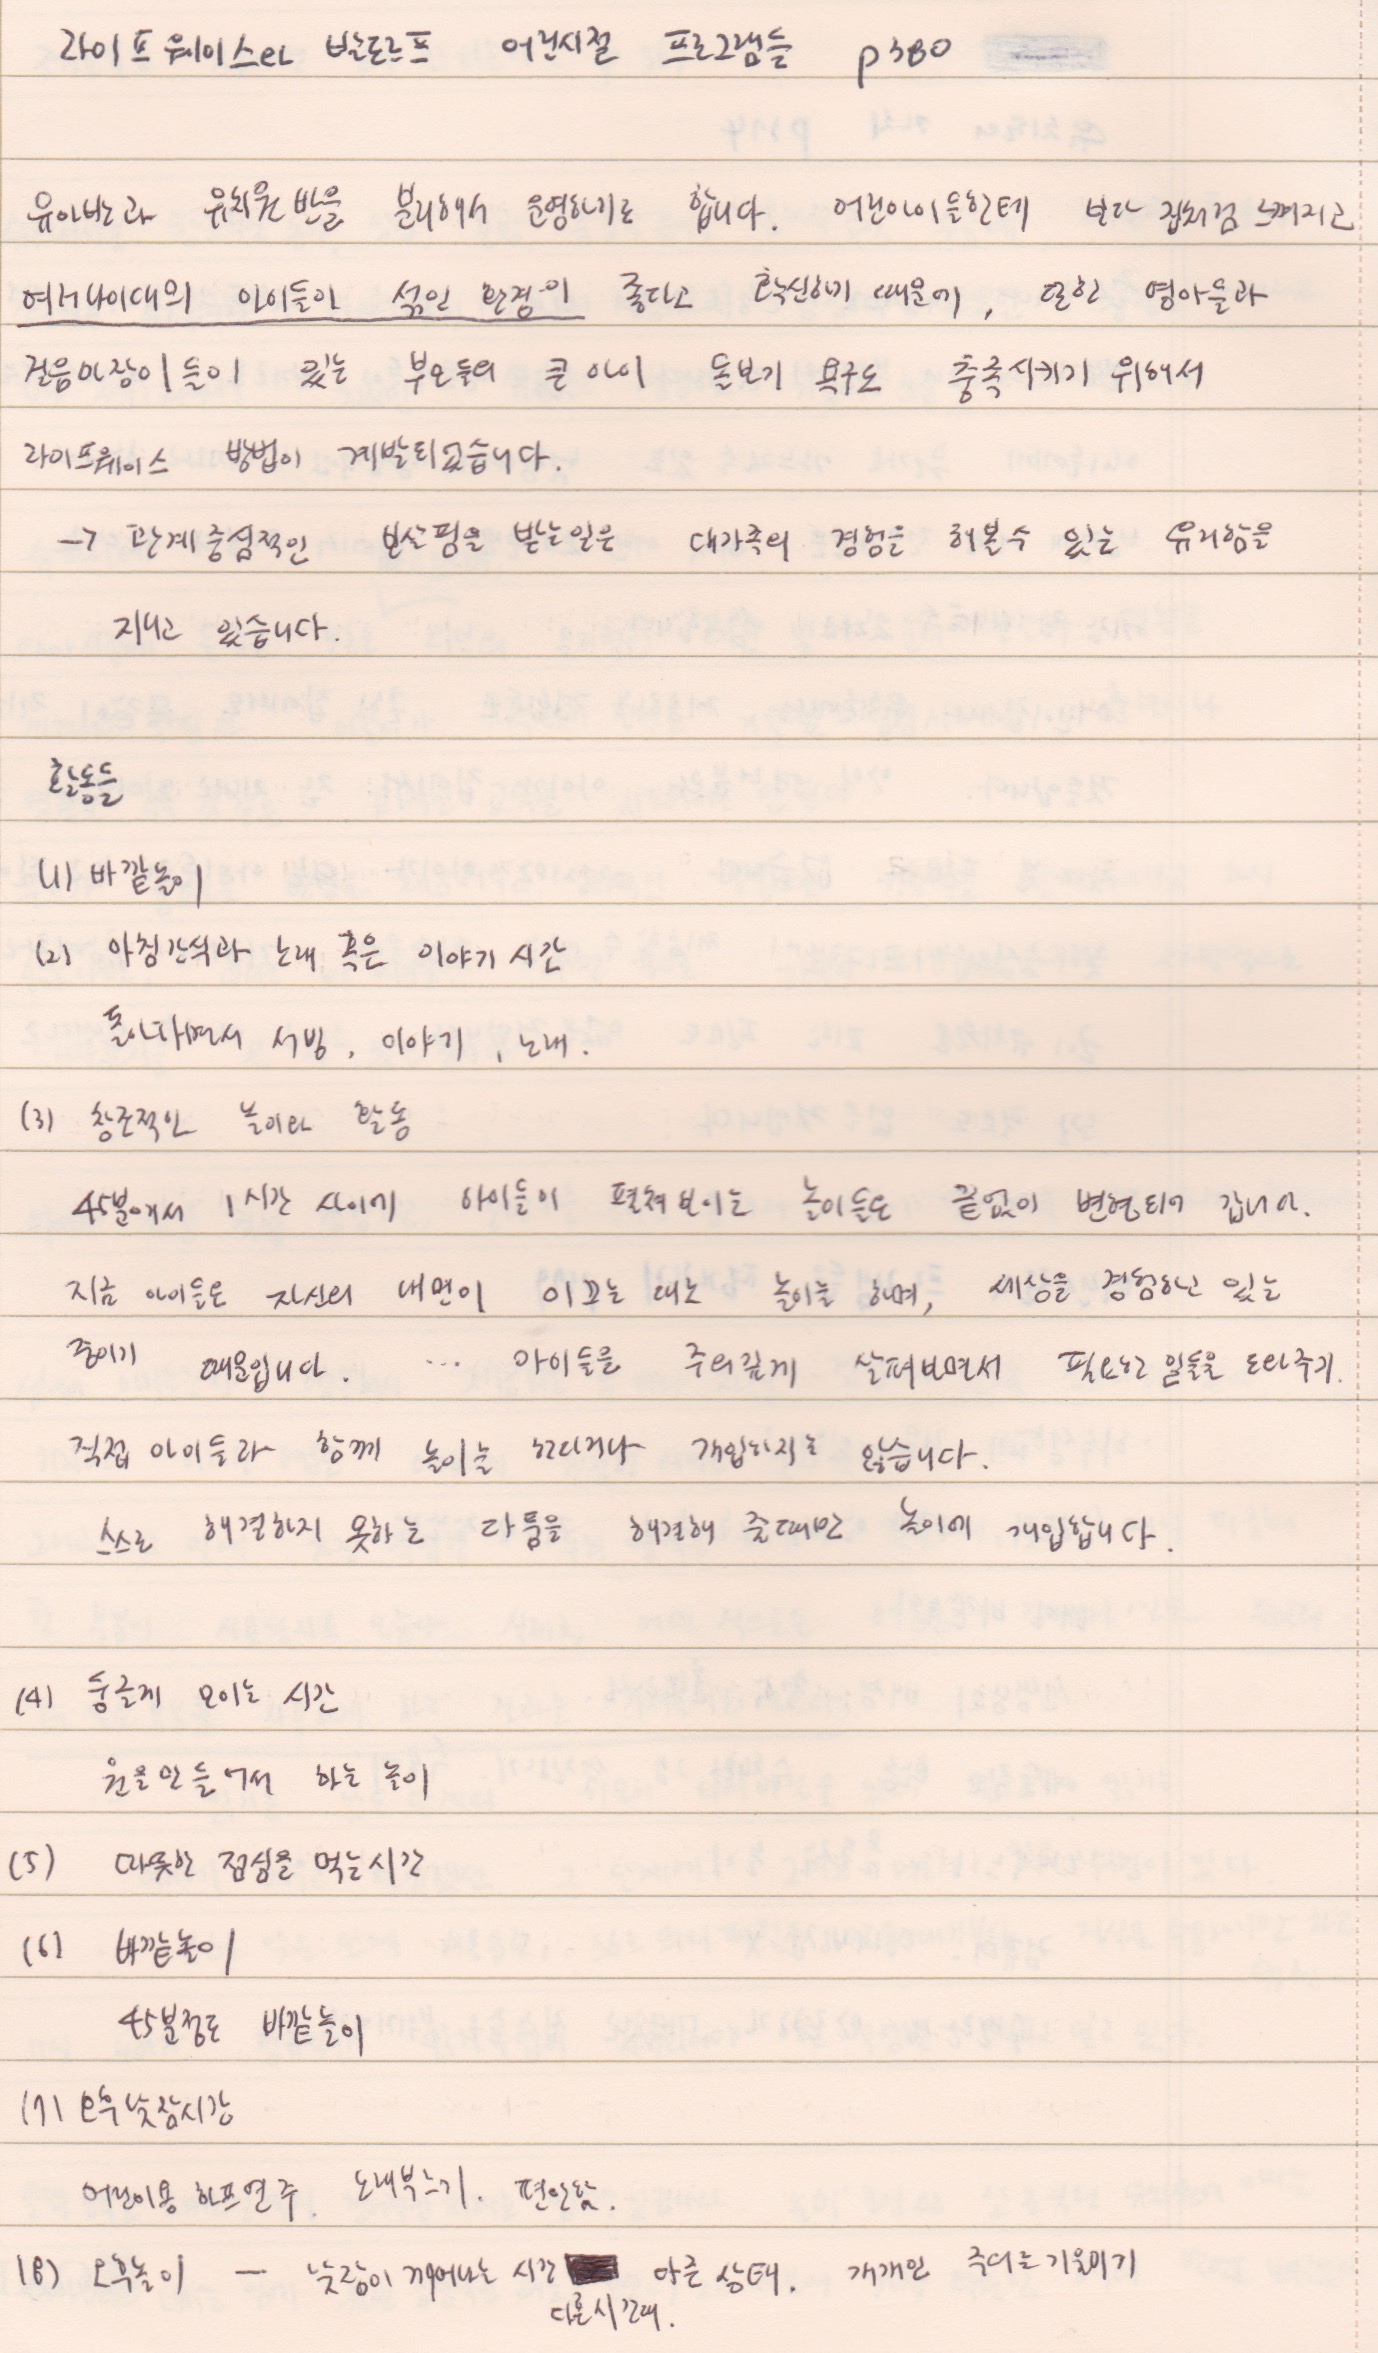 라이프웨이스와 발도르프 어린시절 프로그램들 p380
유아반과 유치원반을 분리해서 운영하기도 합니다. 어린아이들한테 보다 집처럼 느껴지고
여러나이대의 아이들이 섞인 환경이 좋다고 확신하기 때문에, 또한 영아들과
걸음마장이들이 있는 부모들의 큰 아이 돌보기 욕구도 충족시키기 위해서
라이프웨이스 방법이 계발되었습니다.
→ 관계중심적인 보살핌을 받는일은 대가족의 경험을 해볼수 있는 유리함을
지니고 있습니다.
활동들
(1) 바깥놀이
(2) 아침간식과 노래 혹은 이야기 시간
돌아가면서 서빙, 이야기, 노래.
(3) 창조적인 놀이와 활동
45분에서 1시간 사이에 아이들이 펼쳐보이는 놀이들은 끝없이 변형되어 갑니다.
지금 아이들은 자신의 내면이 이끄는 대로 놀이를 하며, 세상을 경험하고 있는
중이기 때문입니다. ... 아이들을 주의깊게 살펴보면서 필요한 일들을 도와주기.
직접 아이들과 함께 놀이를 한다거나 개입하지는 않습니다.
스스로 해결하지 못하는 다툼을 해결해 줄때만 놀이에 개입합니다.
(4) 둥글게 모이는 시간
원을 만들어서 하는 놀이
(5) 따뜻한 점심을 먹는시간
(6) 바깥놀이
45분정도 바깥놀이
(7) 오후낮잠시간
어린이용 하프연주. 노래부르기. 편안함.
(8) 오후놀이 - 낮잠이 깨어나는 시간 다른 상태. 개개인 주의를기울이기
다른시간대.